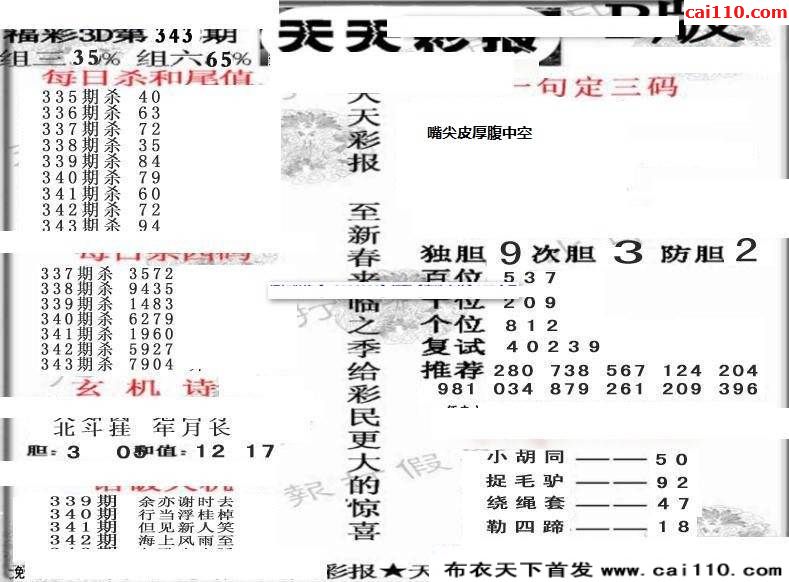 cai110.com
福彩3D第343期
组三35% 组六65%
天天彩报
B版
每日杀和尾值
335期杀 40
336期杀 63
337期杀 72
338期杀 35
339期杀 84
340期杀 79
341期杀 60
342期杀 72
343期杀 94
337期杀 3572
338期杀 9435
339期杀 1483
340期杀 6279
341期杀 1960
342期杀 5927
343期杀 7904
玄机诗
北斗挂 年月长
胆:3 05和值:12 17
339期 余亦谢时去
340期 行当浮桂棹
341期 但见新人笑
342期 海上风雨至
免
天天彩报 至新春来临之季给彩民更大的惊喜
一句定三码
嘴尖皮厚腹中空
独胆9次胆3防胆2
百位 537
十位 209
个位 812
复试 40239
推荐 280 738 567 124 204
981 034 879 261 209 396
小胡同———50
捉毛驴———92
绕绳套———47
勒四蹄———18
彩报★天 布衣天下首发 www.cai110.com